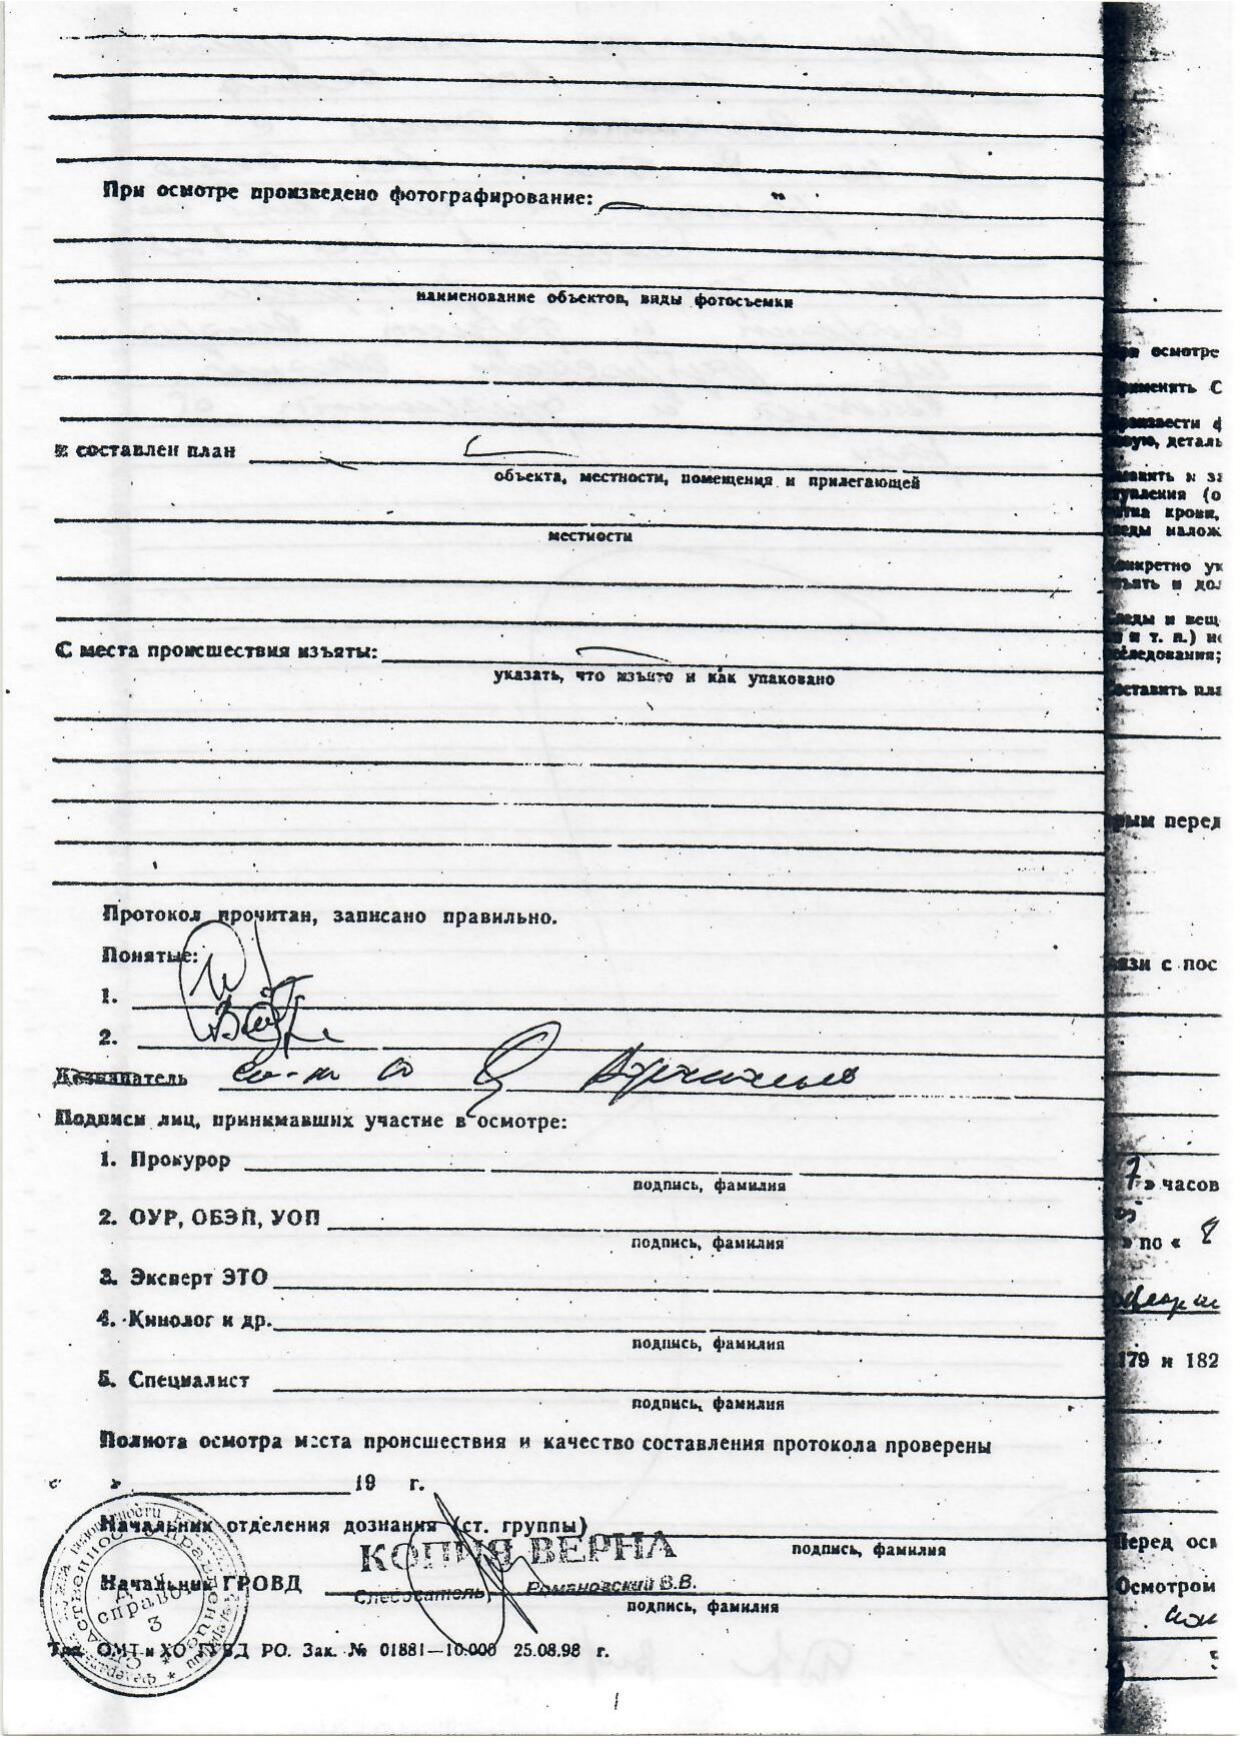 При осмотре произведено фотографирование:
наименование объектов, виды фотосъемки
и составлен план
объекта, местности, помещения и прилегающей
местности
С места происшествия изъяты:
указать, что изъято и как упаковано
Протокол прочитан, записано правильно.
Понятые:
1.
2.
Дознаватель
Подписи лиц, принимавших участие в осмотре:
1. Прокурор
подпись, фамилия
2. ОУР, ОБЭП, УОП
подпись, фамилия
3. Эксперт ЭТО
4. Кинолог и др.
подпись, фамилия
5. Специалист
подпись, фамилия
Полнота осмотра места происшествия и качество составления протокола проверены
« » 19 г.
Начальник отделения дознания (ст. группы)
подпись, фамилия
КОПИЯ ВЕРНА
Начальник ГРОВД
Следователь Романовский В.В.
подпись, фамилия
Тип. ОМТ и ХО ГУВД РО. Зак. № 01881—10.000 25.08.98 г.
для
справок
3
осмотре
Применять С
Произвести ф
деталь
крови,
налож
Конкретно ук
и дол
и вещ
и т. п.) не
исследования;
Составить пла
перед
связи с пос
7» часов
» по « 8
179 и 182
Перед осм
Осмотром